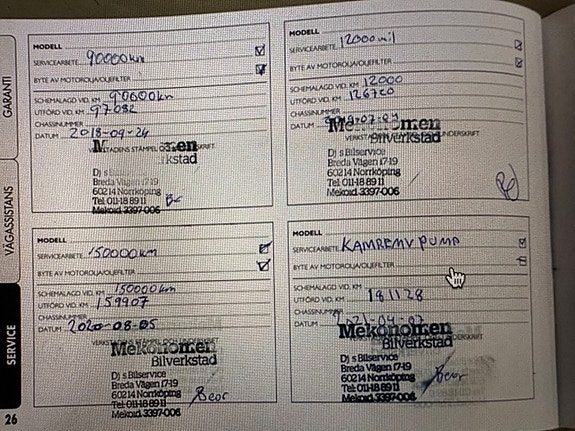 GARANTI
VÄGASSISTANS
SERVICE
26
MODELL
SERVICEARBETE 90000km
BYTE AV MOTOROLJA/OLJEFILTER
SCHEMALAGD VID. KM 90000km
UTFÖRD VID. KM 97082
CHASSINUMMER
DATUM 2018-09-24
Mekonomen
Bilverkstad
Dj s Bilservice
Breda Vägen 17-19
60214 Norrköping
Tel: 011-18 89 11
Mekoid: 3397-006
MODELL
SERVICEARBETE 12000mil
BYTE AV MOTOROLJA/OLJEFILTER
SCHEMALAGD VID. KM 12000
UTFÖRD VID. KM 126720
CHASSINUMMER
DATUM
Mekonomen
Bilverkstad
Dj s Bilservice
Breda Vägen 17-19
60214 Norrköping
Tel: 011-18 89 11
Mekoid: 3397-006
MODELL
SERVICEARBETE 150000km
BYTE AV MOTOROLJA/OLJEFILTER
SCHEMALAGD VID. KM 150000km
UTFÖRD VID. KM 159907
CHASSINUMMER
DATUM 2020-08-05
Mekonomen
Bilverkstad
Dj s Bilservice
Breda Vägen 17-19
60214 Norrköping
Tel: 011-18 89 11
Mekoid: 3397-006
Beor
MODELL
SERVICEARBETE KAMREMV PUMP
BYTE AV MOTOROLJA/OLJEFILTER
SCHEMALAGD VID. KM
UTFÖRD VID. KM 181128
CHASSINUMMER
DATUM 2021-04-07
Mekonomen
Bilverkstad
Dj s Bilservice
Breda Vägen 17-19
60214 Norrköping
Tel: 011-18 89 11
Mekoid: 3397-006
Beor